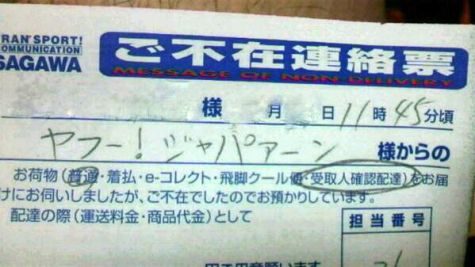 TRAN SPORT!
COMMUNICATION
SAGAWA
ご不在連絡票
MESSAGE OF NON-DELIVERY
様 月 日 11時45分頃
ヤフー!ジャパァーン 様からの
お荷物(普通・着払・e-コレクト・飛脚クール便・受取人確認配達)をお届
けにお伺いしましたが、ご不在でしたのでお預かりしています。
配達の際(運送料金・商品代金)として
担当番号
円ご用意願います